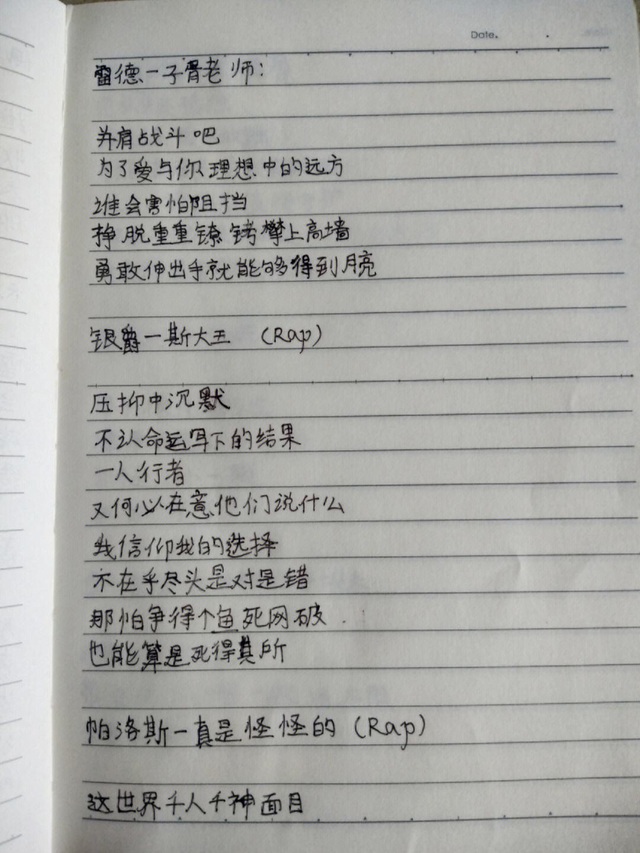 Date.
雷德一子胥老师:
并肩战斗吧
为了爱与你理想中的远方
谁会害怕阻挡
挣脱重重镣铐攀上高墙
勇敢伸出手就能够得到月亮
银爵一斯大王 (Rap)
压抑中沉默
不认命运写下的结果
一人行者
又何必在意他们说什么
我信仰我的选择
不在乎尽头是对是错
那怕争得个鱼死网破
也能算是死得其所
帕洛斯一真是怪怪的 (Rap)
这世界千人千神面目